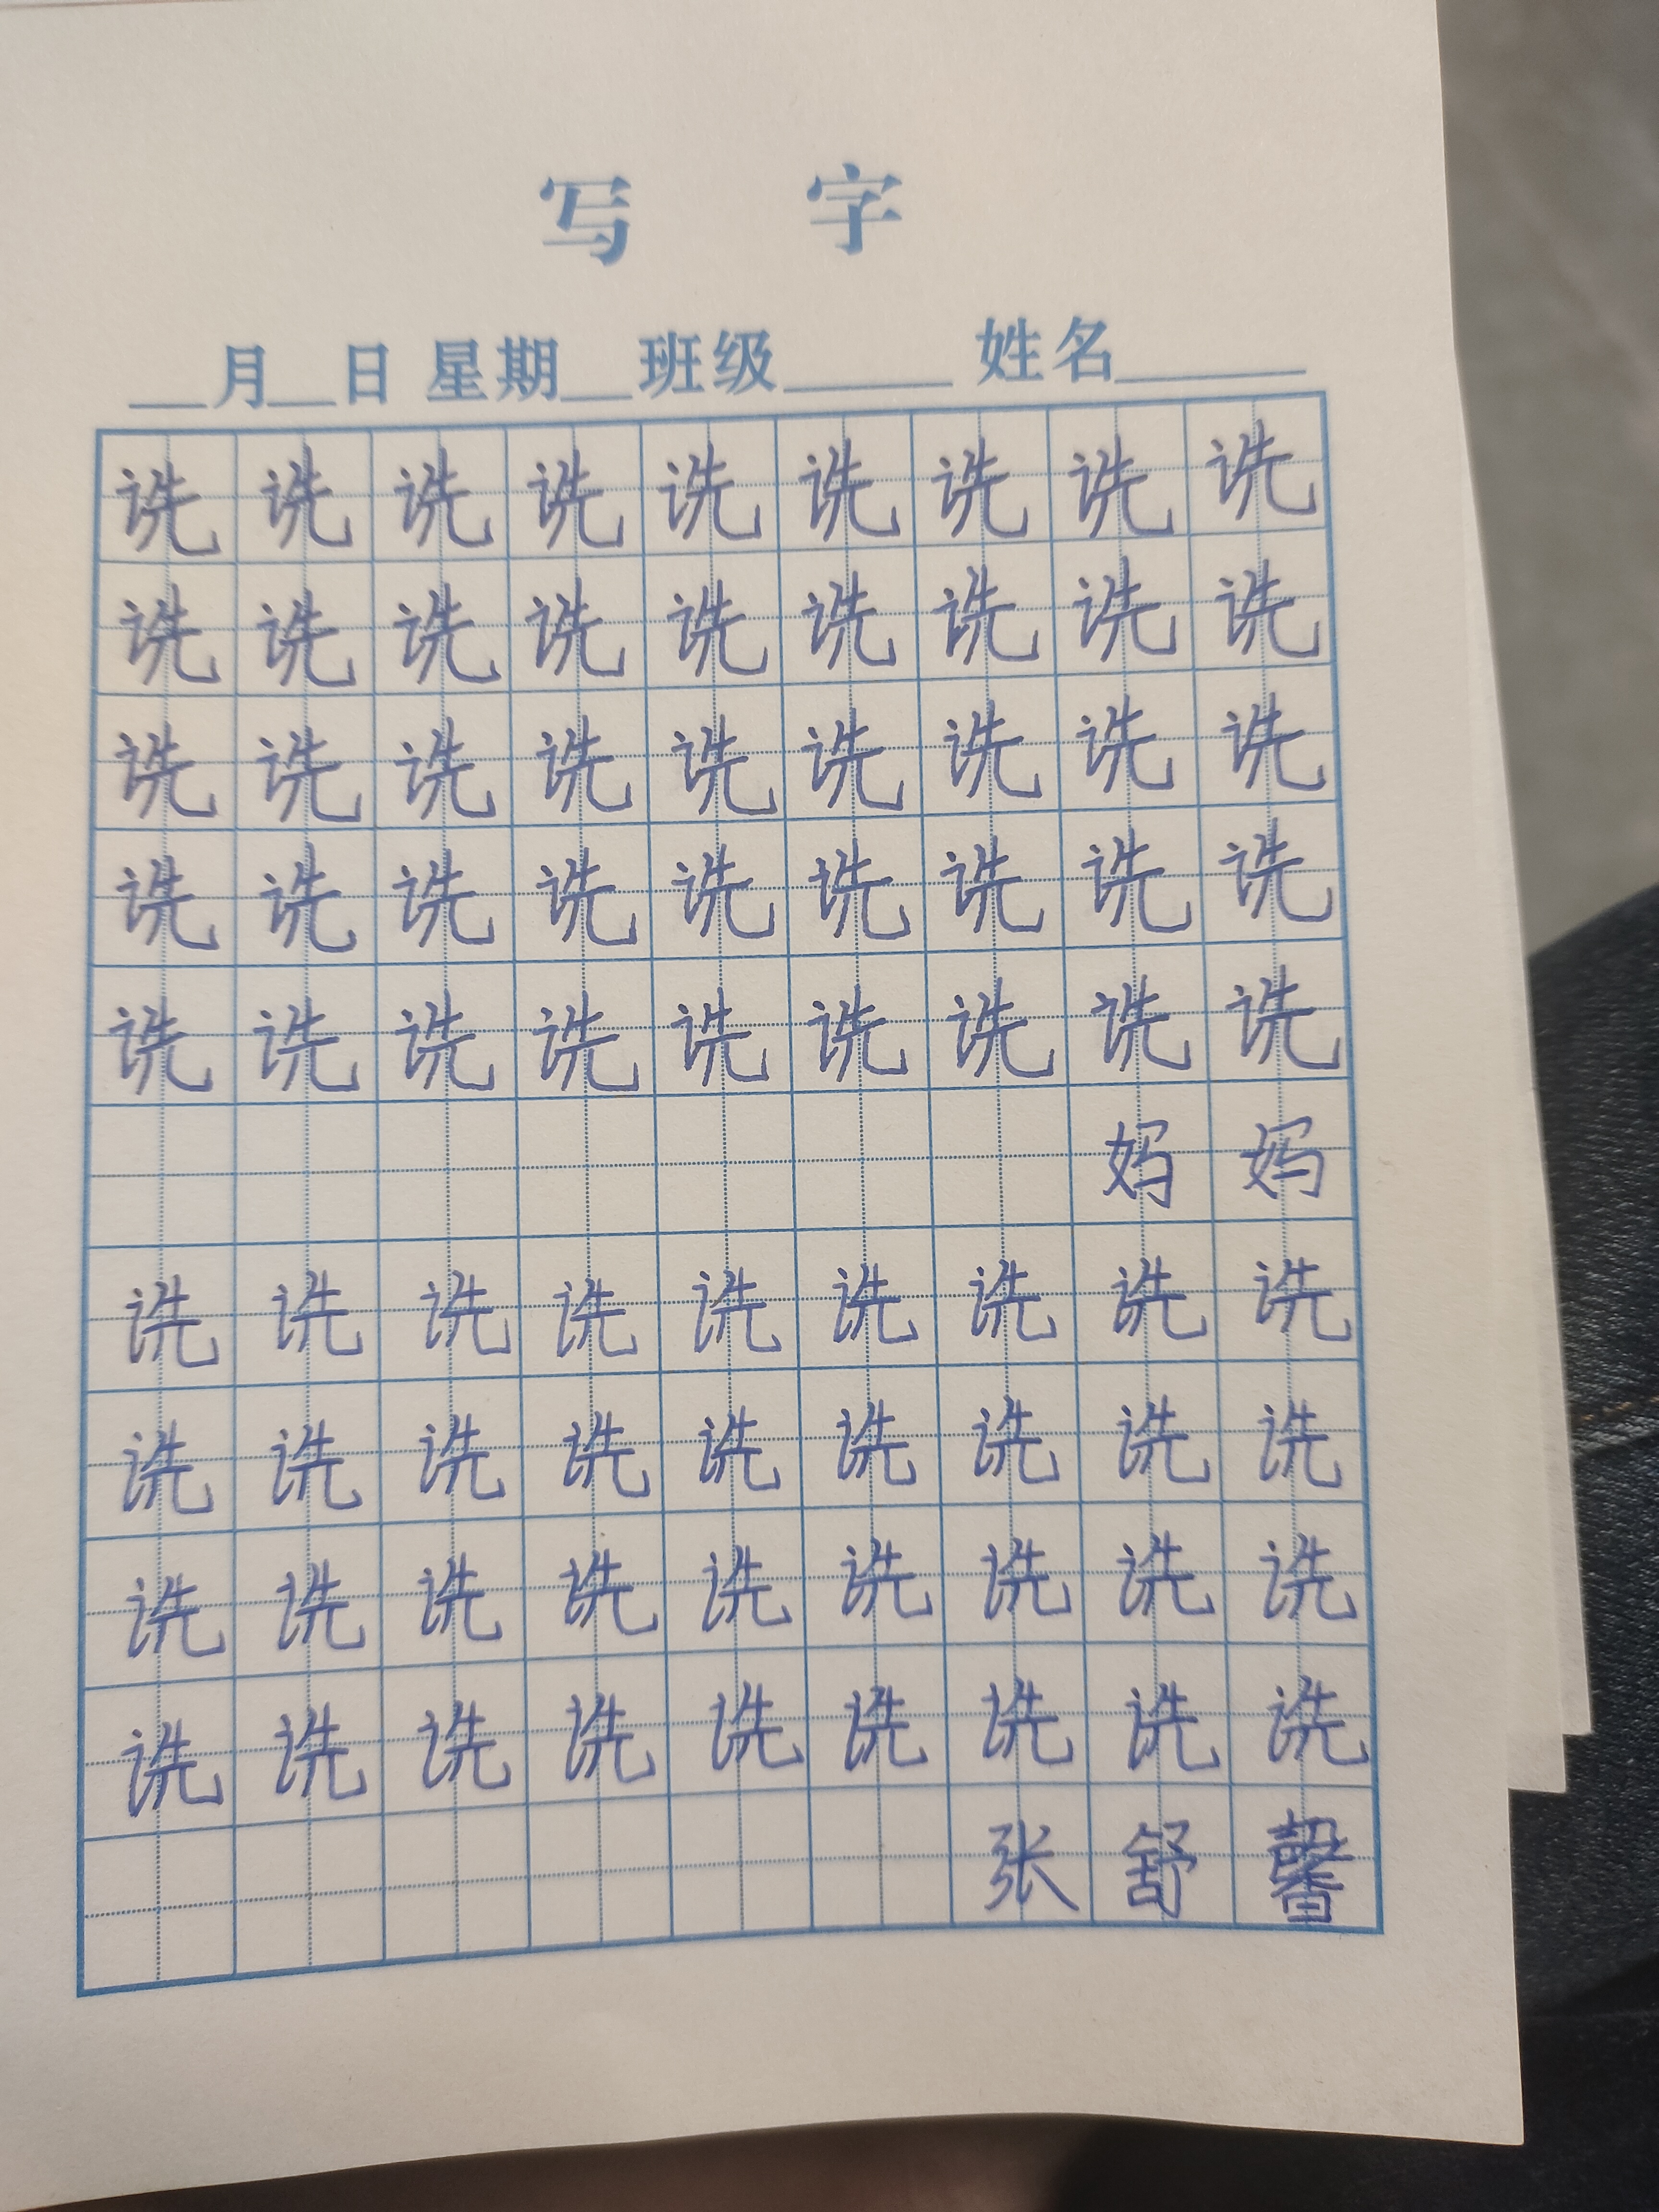 写 字
__月__日 星期__班级____ 姓名____
诜 诜 诜 诜 诜 诜 诜 诜 诜
诜 诜 诜 诜 诜 诜 诜 诜 诜
诜 诜 诜 诜 诜 诜 诜 诜 诜
诜 诜 诜 诜 诜 诜 诜 诜 诜
诜 诜 诜 诜 诜 诜 诜 诜 诜
妈 妈
诜 诜 诜 诜 诜 诜 诜 诜 诜
诜 诜 诜 诜 诜 诜 诜 诜 诜
诜 诜 诜 诜 诜 诜 诜 诜 诜
诜 诜 诜 诜 诜 诜 诜 诜 诜
张 舒 馨